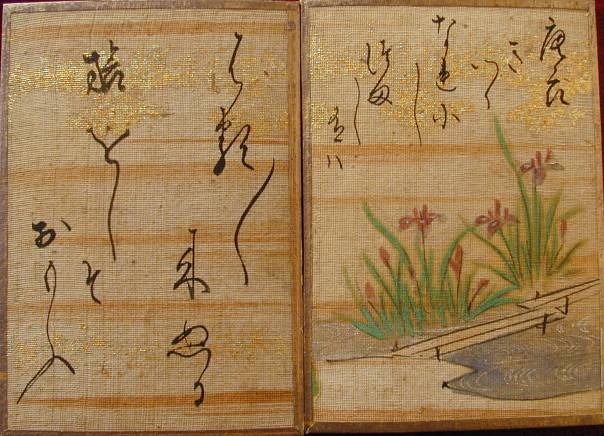 唐衣
きつゝ
なれにし
つまし
あれハ
はる〱
来ぬる
旅をしそ
おもふ